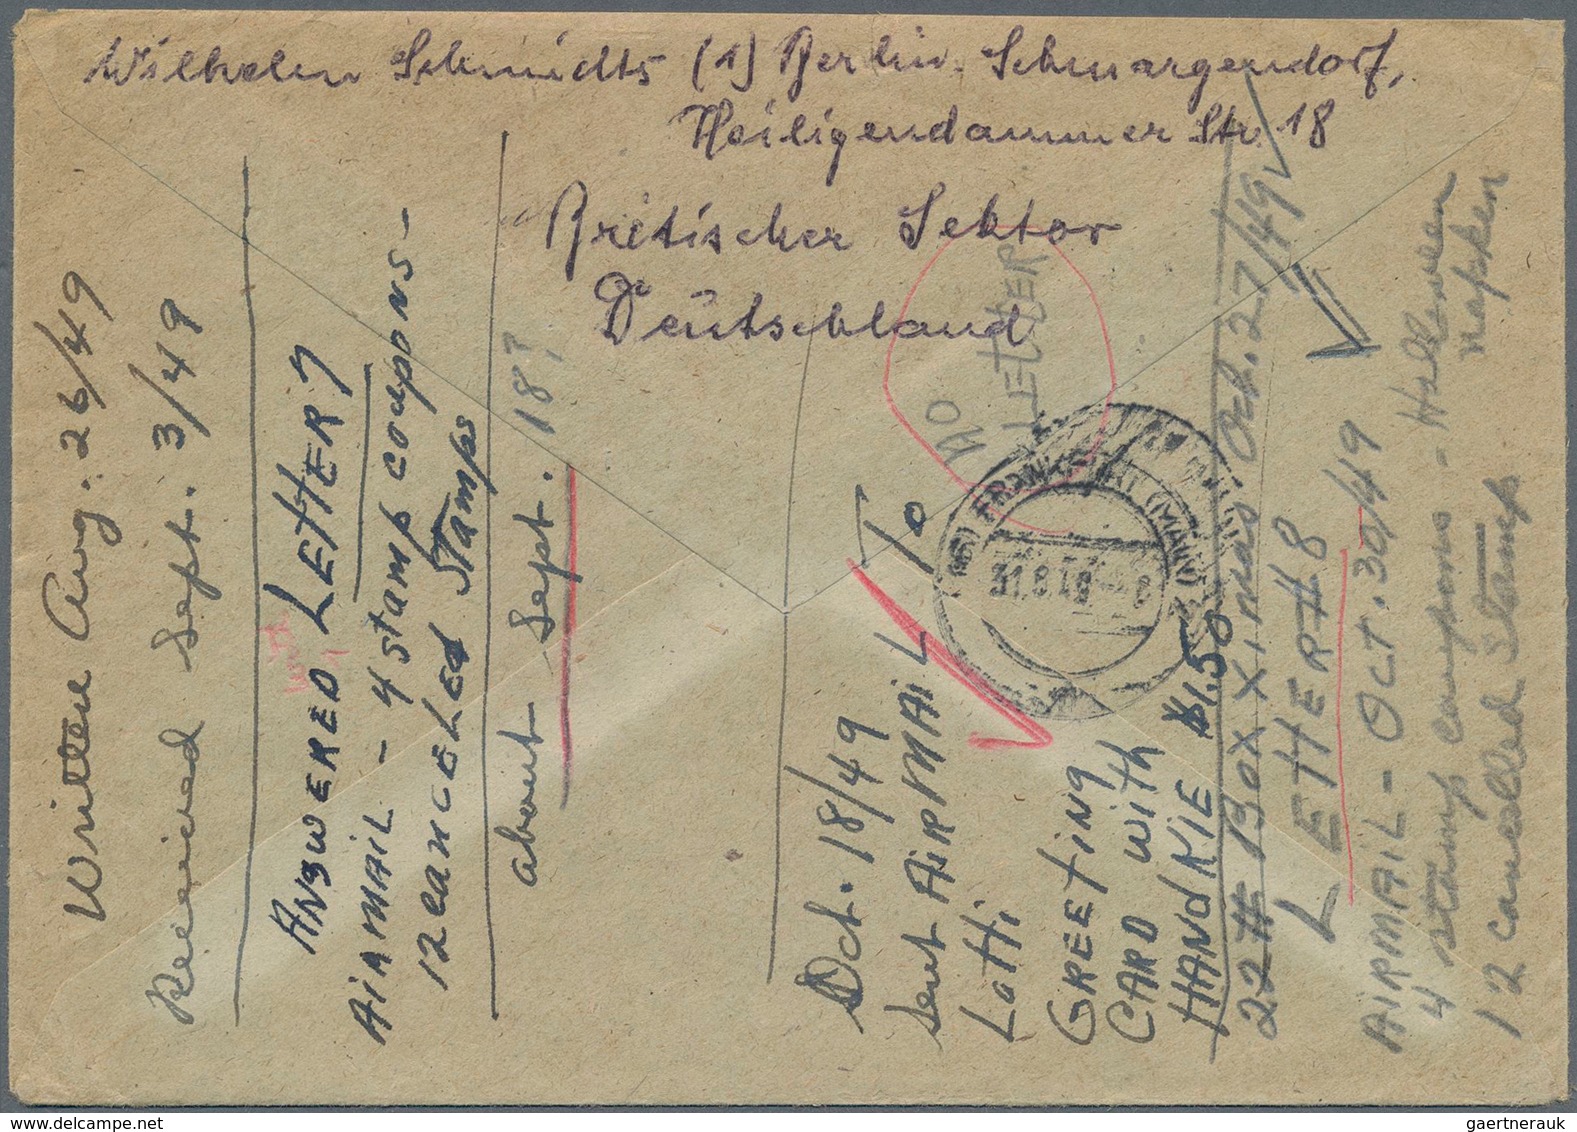 Wilhelm Schmidts (1) Berlin-Schmargendorf,
Heiligendammer Str. 18
Britischer Sektor
Deutschland
Written Aug. 26/49
Received Sept. 3/49
ANSWERED LETTER 7
AIRMAIL - 4 stamp coupons -
12 CANCELED Stamps
about Sept. 18?
NO
LETTER
Oct. 18/49
Sent AIRMAIL To
Lotti
GREETING
CARD with
HANDKIE $1.50
22# Box Xmas Oct. 27/49
LETTER 8
AIRMAIL - OCT. 30/49
4 stamp coupons - Halloween
napken
12 cancelled Stamps
FRANKFURT (MAIN)
31.8.49
gaertnerauk